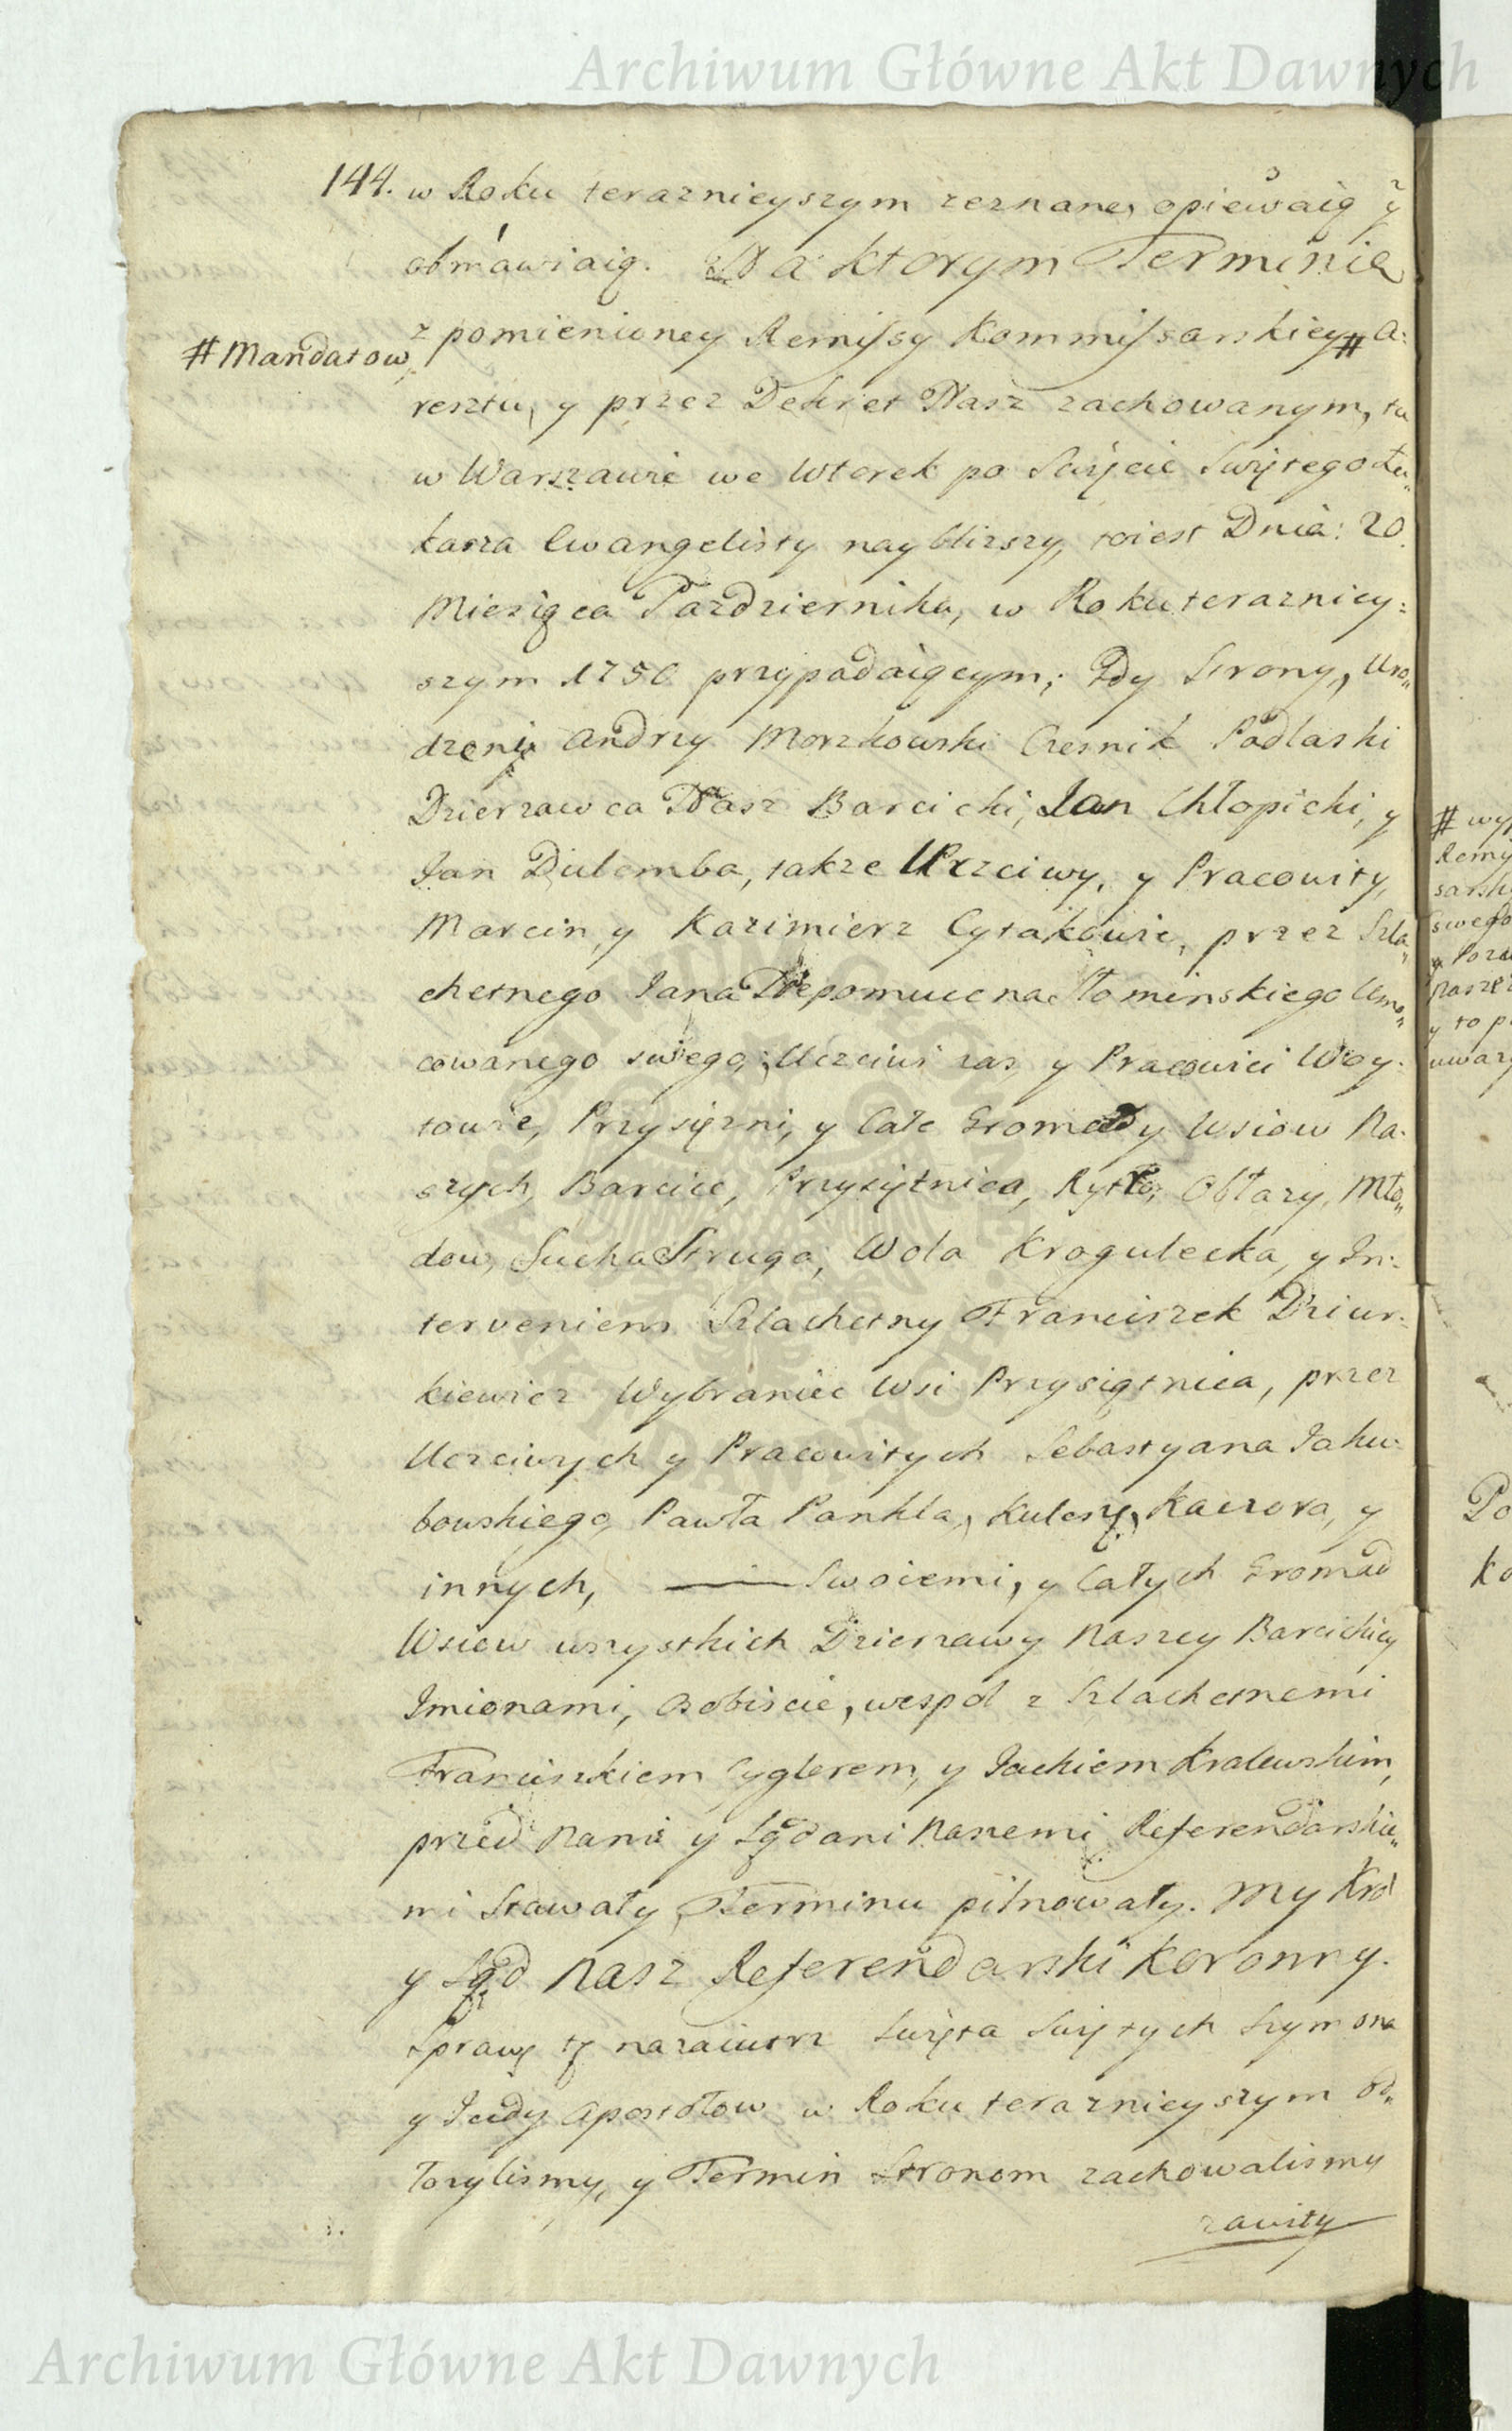 Archiwum Główne Akt Dawnych
144. w Roku teraznieyszym zeznane, opiewaią y
obmawiaią. Na ktorym Terminie
z pomienioney Remissy Kommissarskiey # A:
# Mandatow,
resztu, y przez Dekret Nasz zachowanym, tu
w Warszawie we Wtorek po Swięcie Swiętego Łu„
kasza Ewangelisty naybliższy, toiest Dnia: 20.
Miesiąca Pazdziernika, w Roku terazniey:
szym 1750 przypadaiącym; Gdy Strony, Uro„
dzony Andrzy Morzkowski Czesnik Podlaski
Dzierzawca Nasz Barcicki, Jan Chłopicki, y
Jan Dulemba, takze Uczciwy, y Pracowity,
Marcin, y Kazimierz Cytakowie, przez Szla„
chetnego Jana Nepomucena Słominskiego Umo„
cowanego swego; Uczciwi zas, y Pracowici Woy:
towie, Przysięzni, y Całe Gromady Wsiow Na:
szych, Barcice, Przysiętnica, Rytro, Obłazy, Mło„
dow, Sucha Struga, Wola Krogulecka, y In:
terveniens Szlachetny Franciszek Dziur:
kiewicz Wybraniec Wsi Przysiątnica, przez
Uczciwych y Pracowitych Sebastyana Jaku:
bowskiego, Pawła Pankla, Kulesy, Kaczora, y
innych, Swoiemi, y Całych Gromad
Wsiow wszystkich Dzierzawy Naszey Barcickiey
Imionami, Osobiscie, wespol z Szlachetnemi
Franciszkiem Cyglerem, y Jackiem Kralewskim,
przed Nami y Sądami Naszemi Referendarskie„
mi Stawały, Terminu pilnowały. My Krol
y Sąd Nasz Referendarski Koronny.
Sprawę tę nazaiutrz Swięta Swiętych Szymona
y Judy Apostołow w Roku teraznieyszym od„
łozylismy, y Termin Stronom zachowalismy
zawity
# wy
Remy
sarsk
swego
nasze
y to p
uwaz
Po
Ko
ARCHIWUM GŁÓWNE AKT DAWNYCH
Archiwum Główne Akt Dawnych